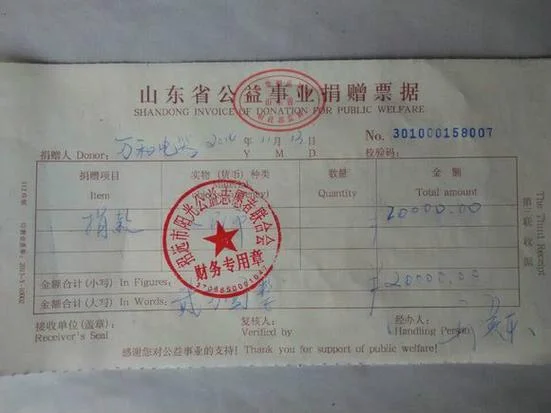 山东省公益事业捐赠票据
SHANDONG INVOICE OF DONATION FOR PUBLIC WELFARE
捐赠人 Donor: 万和电器 2014 年 11 月 13 日 No. 301000158007
Y M. D. 校验码:
捐赠项目 实物(货币)种类 数量 金额
Item Quantity Total amount
捐款 20000.00
金额合计(小写) In Figures: 20000.00
金额合计(大写) In Words: 贰万元整
接收单位(盖章): 复核人: 经办人:
Receiver's Seal Verified by Handling Person
感谢您对公益事业的支持! Thank you for support of public welfare!
招远市阳光公益志愿者联合会
财务专用章
第三联 收据
The Third Receipt